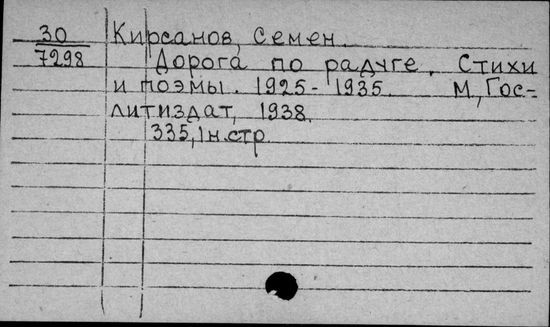 30 Кирсанов, Семен
7298 Дорога по радуге. Стихи
и поэмы. 1925-1935. М, Гос-
литиздат, 1938.
335, 1 н. стр.